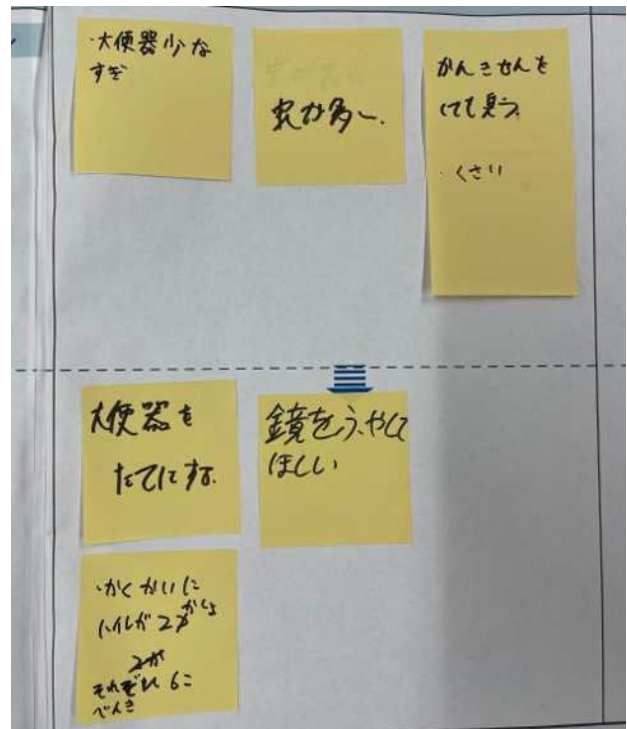 ・大便器少な
すぎ
虫が多い.
かんきせんを
しても臭う.
・くさい
大便器を
たてにする.
鏡をふやして
ほしい
・かくかいに
トイレが2かしょ
2か
それぞれ6こ
べんき